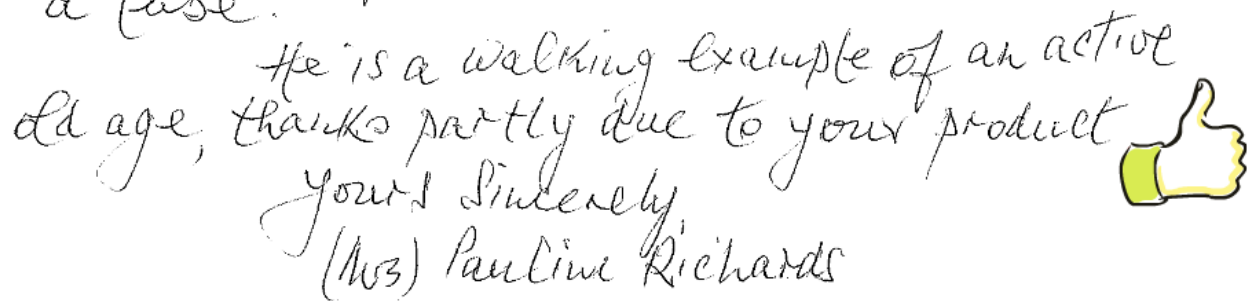 a
He is a walking example of an active
old age, thanks partly due to your product
Yours Sincerely,
(Mrs) Pauline Richards